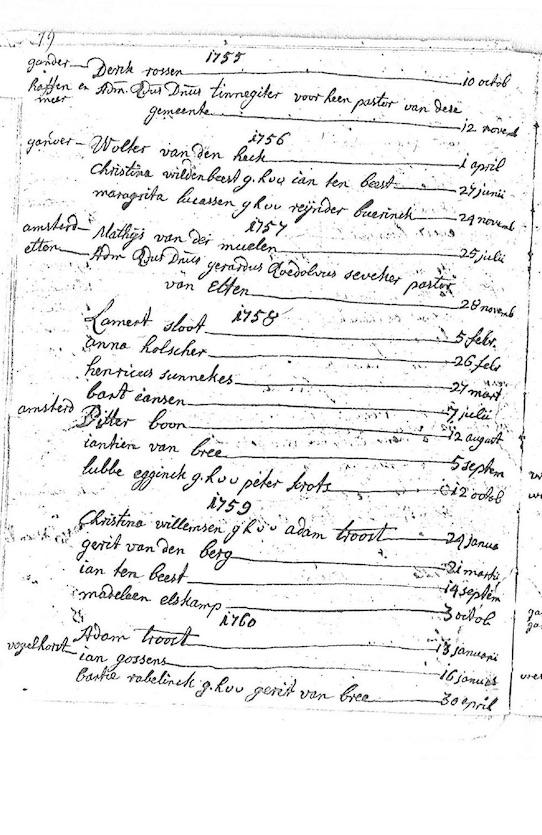 79
1755
gander Derck rossen 10 octob
haffen en Adm. Rdus Dnus tinnegiter voor heen pastor van dese
meer gemeente 12 novemb
1756
ganver Wolter van den heck 1 april
Christina wildenbeest g.huv ian ten beest 27 junii
maragrita lucassen g huv reijnder buerinck 24 novemb
1757
amsterd Mathijs van der muelen 25 julii
etten Adm Rdus Dnus gerardus Roedolvus seveker pastor
van Etten 28 novemb
1758
Lamert sloot 5 febr.
anna holscher 26 febr
henricus sunnekes 27 mart
bart iansen 7 julii
amsterd Pitter boon 12 august
iantien van bree 5 septem
lubbe egginck g.huv peter 12 octob
1759
Christina willemsen g huv adam troost 29 janua
gerit van den berg 21 martii
ian ten beest 14 septem
madeleen elskamp 3 octob
1760
Adam troost 13 januarii
vogelhorst ian gossens 16 janua
bartie rabelinck g.huv gerit van bree 30 april